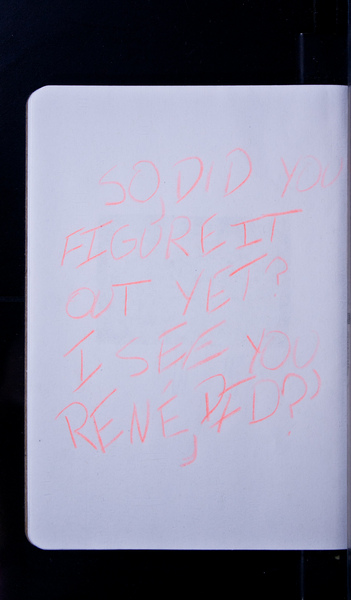 SO, DID YOU
FIGURE IT
OUT YET?
I SEE YOU
RENE,